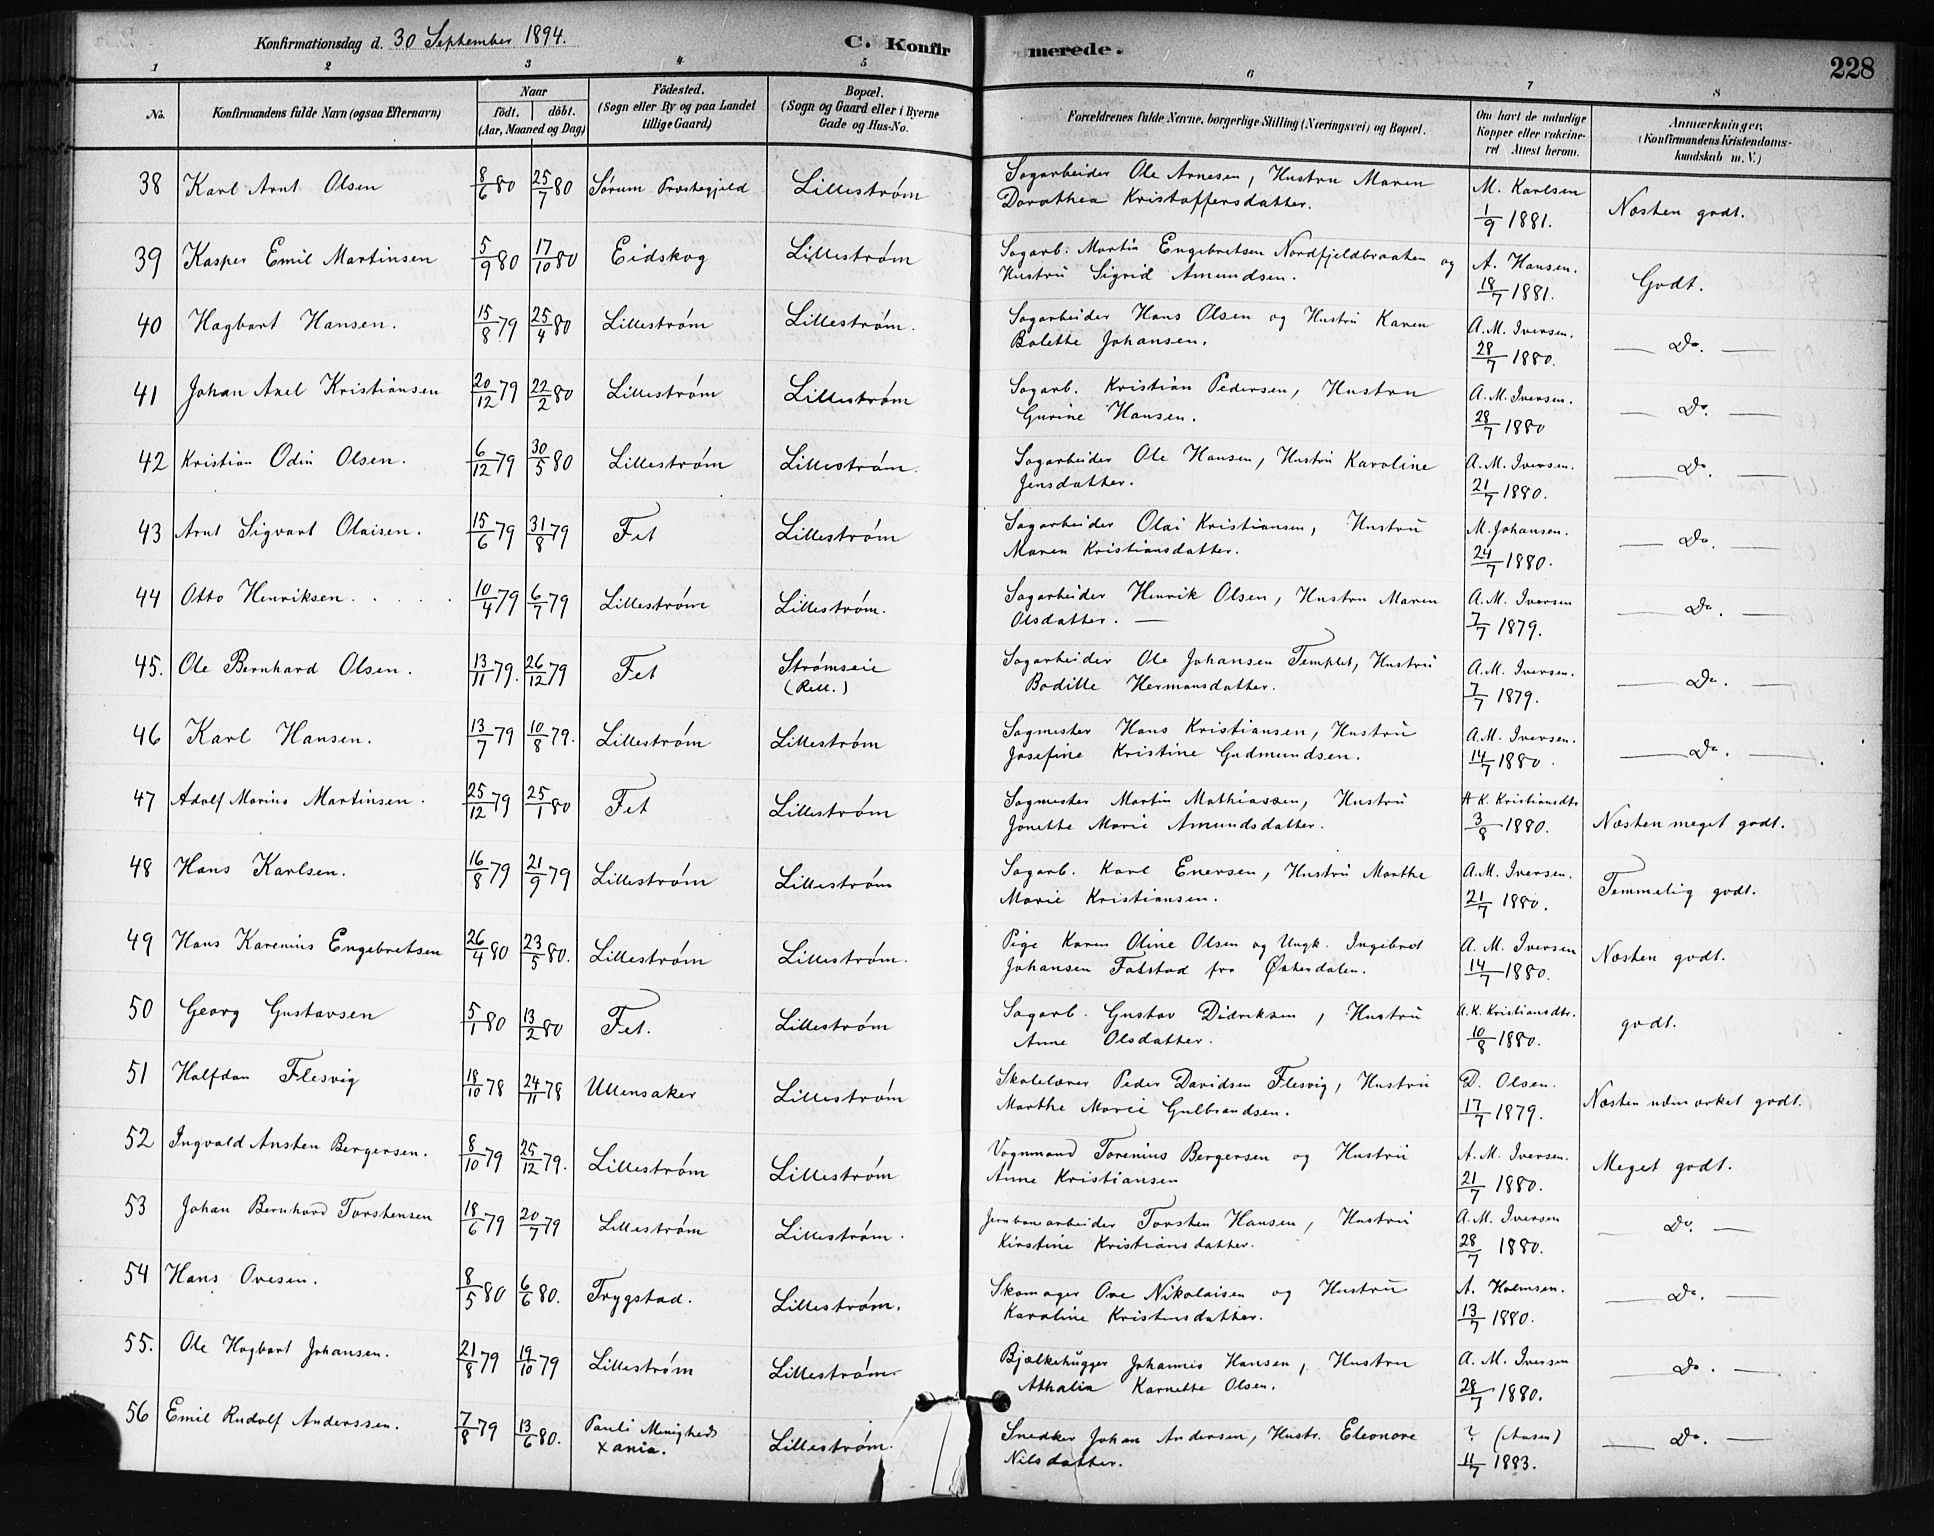 Konfirmationsdag d. 30 September 1894.
C. Konfirmerede.
228
1 2 3 4 5 6 7 8
No.
Konfirmandens fulde Navn (ogsaa Efternavn)
Naar
født. døbt.
(Aar, Maaned og Dag)
Fødested.
(Sogn eller By og paa Landet
tillige Gaard)
Bopæl.
(Sogn og Gaard eller i Byerne
Gade og Hus-No.
Forældrenes fulde Navne, borgerlige Stilling (Næringsvei) og Bopæl.
Om havt de naturlige
Kopper eller vakcine-
ret Attest herom.
Anmærkninger,
(Konfirmandens Kristendoms-
kundskab m. V.)
38 Karl Arnt Olsen 8/6 80 25/7 80 Sørum Præstegjeld Lillestrøm Sagarbeider Ole Arnesen, Hustru Maren M. Karlsen
Dorothea Kristoffersdatter. 1/9 1881. Næsten godt.
39 Kasper Emil Martinsen 5/9 80 17/10 80 Eidskog Lillestrøm Sagarb. Martin Engebretsen Nordfjeldbraaten og A. Hansen.
Hustru Sigrid Amundsen. 18/7 1881. Godt.
40 Hagbart Hansen. 15/8 79 25/4 80 Lillestrøm Lillestrøm. Sagarbeider Hans Olsen og Hustru Karen A. M. Iversen.
Bolette Johansen. 28/7 1880. — Do. —
41 Johan Axel Kristiansen 20/12 79 22/2 80 Lillestrøm Lillestrøm Sagarb. Kristian Pedersen, Hustru A. M. Iversen.
Gurine Hansen. 28/7 1880 — Do. —
42 Kristian Odin Olsen. 6/12 79 30/5 80 Lillestrøm Lillestrøm. Sagarbeider Ole Hansen, Hustru Karoline A. M. Iversen.
Jensdatter. 21/7 1880. — Do. —
43 Arnt Sigvart Olaisen. 15/6 79 31/8 79 Fet Lillestrøm Sagarbeider Olai Kristiansen, Hustru M. Johansen.
Maren Kristiansdatter. 24/7 1880. — Do. —
44 Otto Henriksen. 10/4 79 6/7 79 Lillestrøm Lillestrøm. Sagarbeider Henrik Olsen, Hustru Maren A. M. Iversen
Olsdatter. — 7/7 1879. — Do. —
45. Ole Bernhard Olsen. 13/11 79. 26/12 79 Fet Strømseie Sagarbeider Ole Johansen Templet, Hustru A. M. Iversen.
(Rell.) Bodille Hermansdatter. 7/7 1879. — Do. —
46 Karl Hansen. 13/7 79 10/8 79. Lillestrøm Lillestrøm Sagmester Hans Kristiansen, Hustru A. M. Iversen.
Josefine Kristine Gudmundsen. 14/7 1880 — Do. —
47 Adolf Marius Martinsen. 25/12 79 25/1 80 Fet Lillestrøm Sagmester Martin Mathiassen, Hustru A K. Kristiansdtr
Jonette Marie Amundsdatter. 3/8 1880. Næsten meget godt.
48 Hans Karlsen. 16/8 79 21/9 79 Lillestrøm Lillestrøm Sagarb. Karl Enersen, Hustru Marthe A. M. Iversen.
Marie Kristiansen. 21/7 1880. Temmelig godt.
49 Hans Karenius Engebretsen 26/4 80 23/5 80. Lillestrøm Lillestrøm. Pige Karen Oline Olsen og Ungk. Ingebret A. M. Iversen
Johansen Fatstad fra Østerdalen. 14/7 1880. Næsten godt.
50 Georg Gustavsen 5/1 80 13/2 80 Fet. Lillestrøm Sagarb. Gustav Didriksen, Hustru A. K. Kristiansdtr.
Anne Olsdatter. 10/8 1880. godt.
51 Halfdan Flesvig 18/10 78 24/11 78 Ullensaker Lillestrøm Skolelærer Peder Davidsen Flesvig, Hustru D. Olsen.
Marthe Marie Gulbrandsen. 17/7 1879. Næsten udmærket godt.
52 Ingvald Ansten Bergersen. 8/10 79 25/12 79. Lillestrøm Lillestrøm Vognmand Torenius Bergersen og Hustru A. M. Iversen.
Anne Kristiansen 21/7 1880. Meget godt.
53 Johan Bernhard Torstensen 18/6 79 20/7 79 Lillestrøm Lillestrøm. Jernbanearbeider Torsten Hansen, Hustru A. M. Iversen
Kirstine Kristiansdatter. 28/7 1880. Do. —
54 Hans Ovesen. 8/5 80 6/6 80. Trygstad. Lillestrøm. Skomager Ove Nikolaisen og Hustru A. Holmsen.
Karoline Kristensdatter. 13/7 1880. — Do. —
55. Ole Hagbart Johansen. 21/8 79 19/10 79 Lillestrøm Lillestrøm. Bjælkehugger Johannes Hansen, Hustru A. M. Iversen
Athalia Karnette Olsen. 28/7 1880. — Do. —
56 Emil Rudolf Anderssen. 7/8 79 13/6 80. Pauli Menigheds Lillestrøm. Snedker Johan Andersen, Hustr. Eleonore ? (Aasen)
Xania. Nilsdatter. 11/7 1883. — Do. —